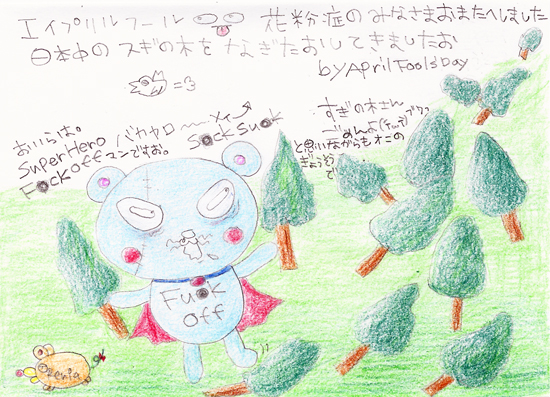 エイプリルフール 花粉症のみなさまおまたへしました
日本中のスギの木をなぎたおしてきましたお
by April Fool's Day
=3
おいらは。
Super Hero
F●ck off マンですお。
バカヤロ〜〜
S●ck Su●k
すぎの木さん
ごめんよ
と思いながらもオニの
ぎょうそう
で
Fu●k
off